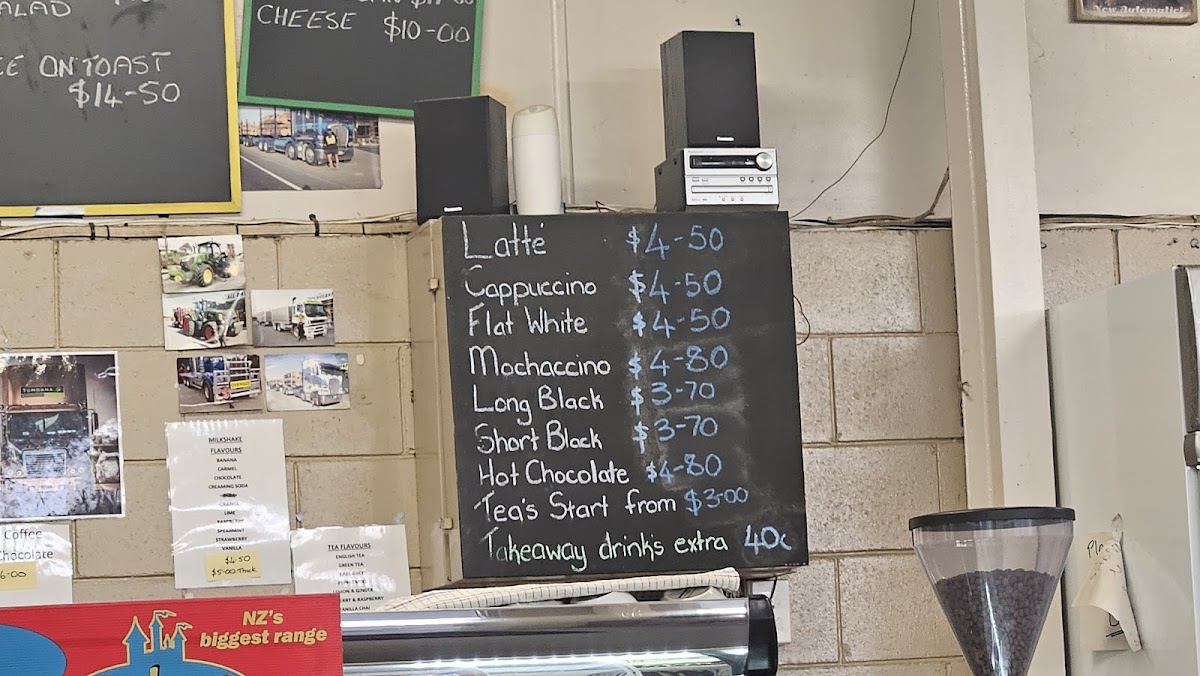 ALAD
ON TOAST
$14-50
CHEESE $10-00
Panasonic
Latté $4-50
Cappuccino $4-50
Flat White $4-50
Mochaccino $4-80
Long Black $3-70
Short Black $3-70
Hot Chocolate $4-80
Tea's Start from $3-00
Takeaway drinks extra 40c
MILKSHAKE
FLAVOURS
BANANA
CARMEL
CHOCOLATE
CREAMING SODA
ORANGE
LIME
RASPBERRY
SPEARMINT
STRAWBERRY
VANILLA
$4.50
$5.00 Thick
Coffee
Chocolate
6-00
TEA FLAVOURS
ENGLISH TEA
GREEN TEA
EARL GREY
PEPPERMINT
LEMON & GINGER
& RASPBERRY
VANILLA CHAI
NZ's
biggest range